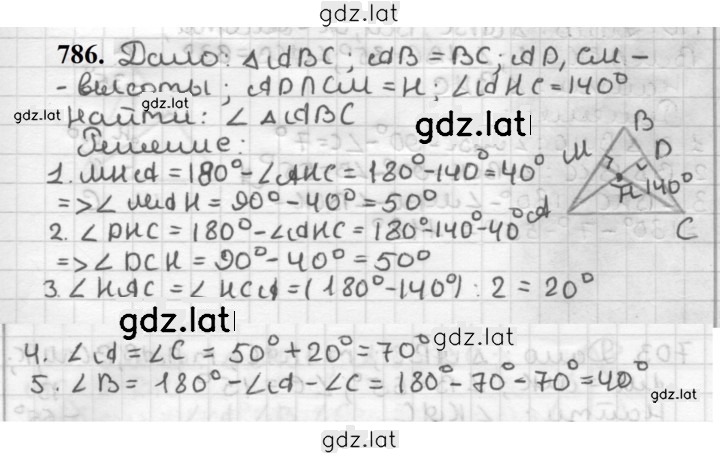 gdz.lat
786. Дано: △ABC; AB = BC; AD, CM -
- высоты; AD∩CM = H; ∠AHC = 140°
gdz.lat
Найти: ∠ △ABC
gdz.lat
Решение:
1. MHA = 180° - ∠AHC = 180° - 140° = 40°
=> ∠MAH = 90° - 40° = 50°
2. ∠DHC = 180° - ∠AHC = 180° - 140° - 40°
=> ∠DCH = 90° - 40° = 50°
3. ∠HAC = ∠HCA = (180° - 140°) : 2 = 20°
B
M
D
H
140°
A
C
gdz.lat
gdz.lat
4. ∠A = ∠C = 50° + 20° = 70°
5. ∠B = 180° - ∠A - ∠C = 180° - 70° - 70° = 40°
gdz.lat
gdz.lat